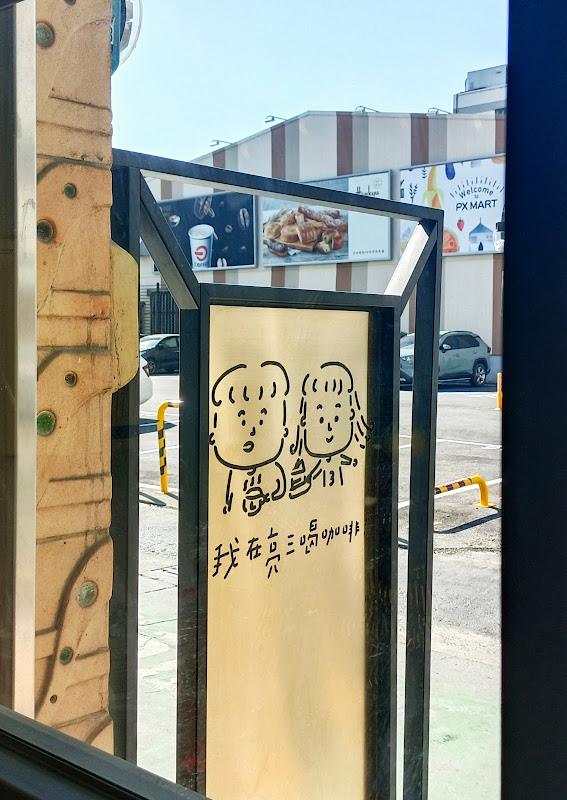 Welcome
to
PX MART
我在亮三喝咖啡